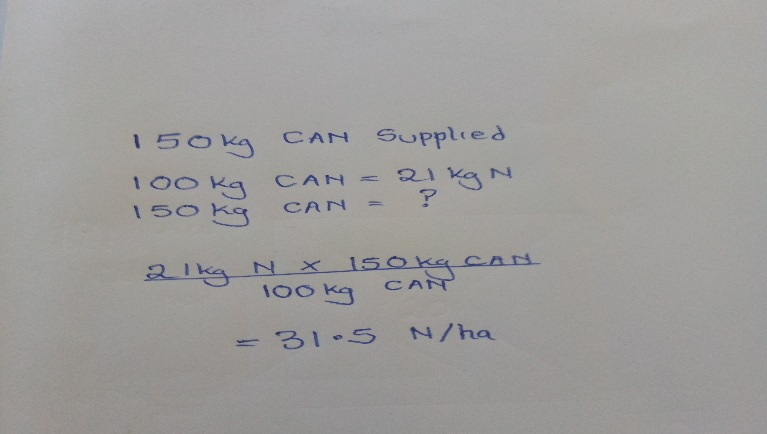 150kg CAN Supplied
100 kg CAN = 21 kg N
150 kg CAN = ?
21kg N x 150kg CAN
100 kg CAN
= 31.5 N/ha